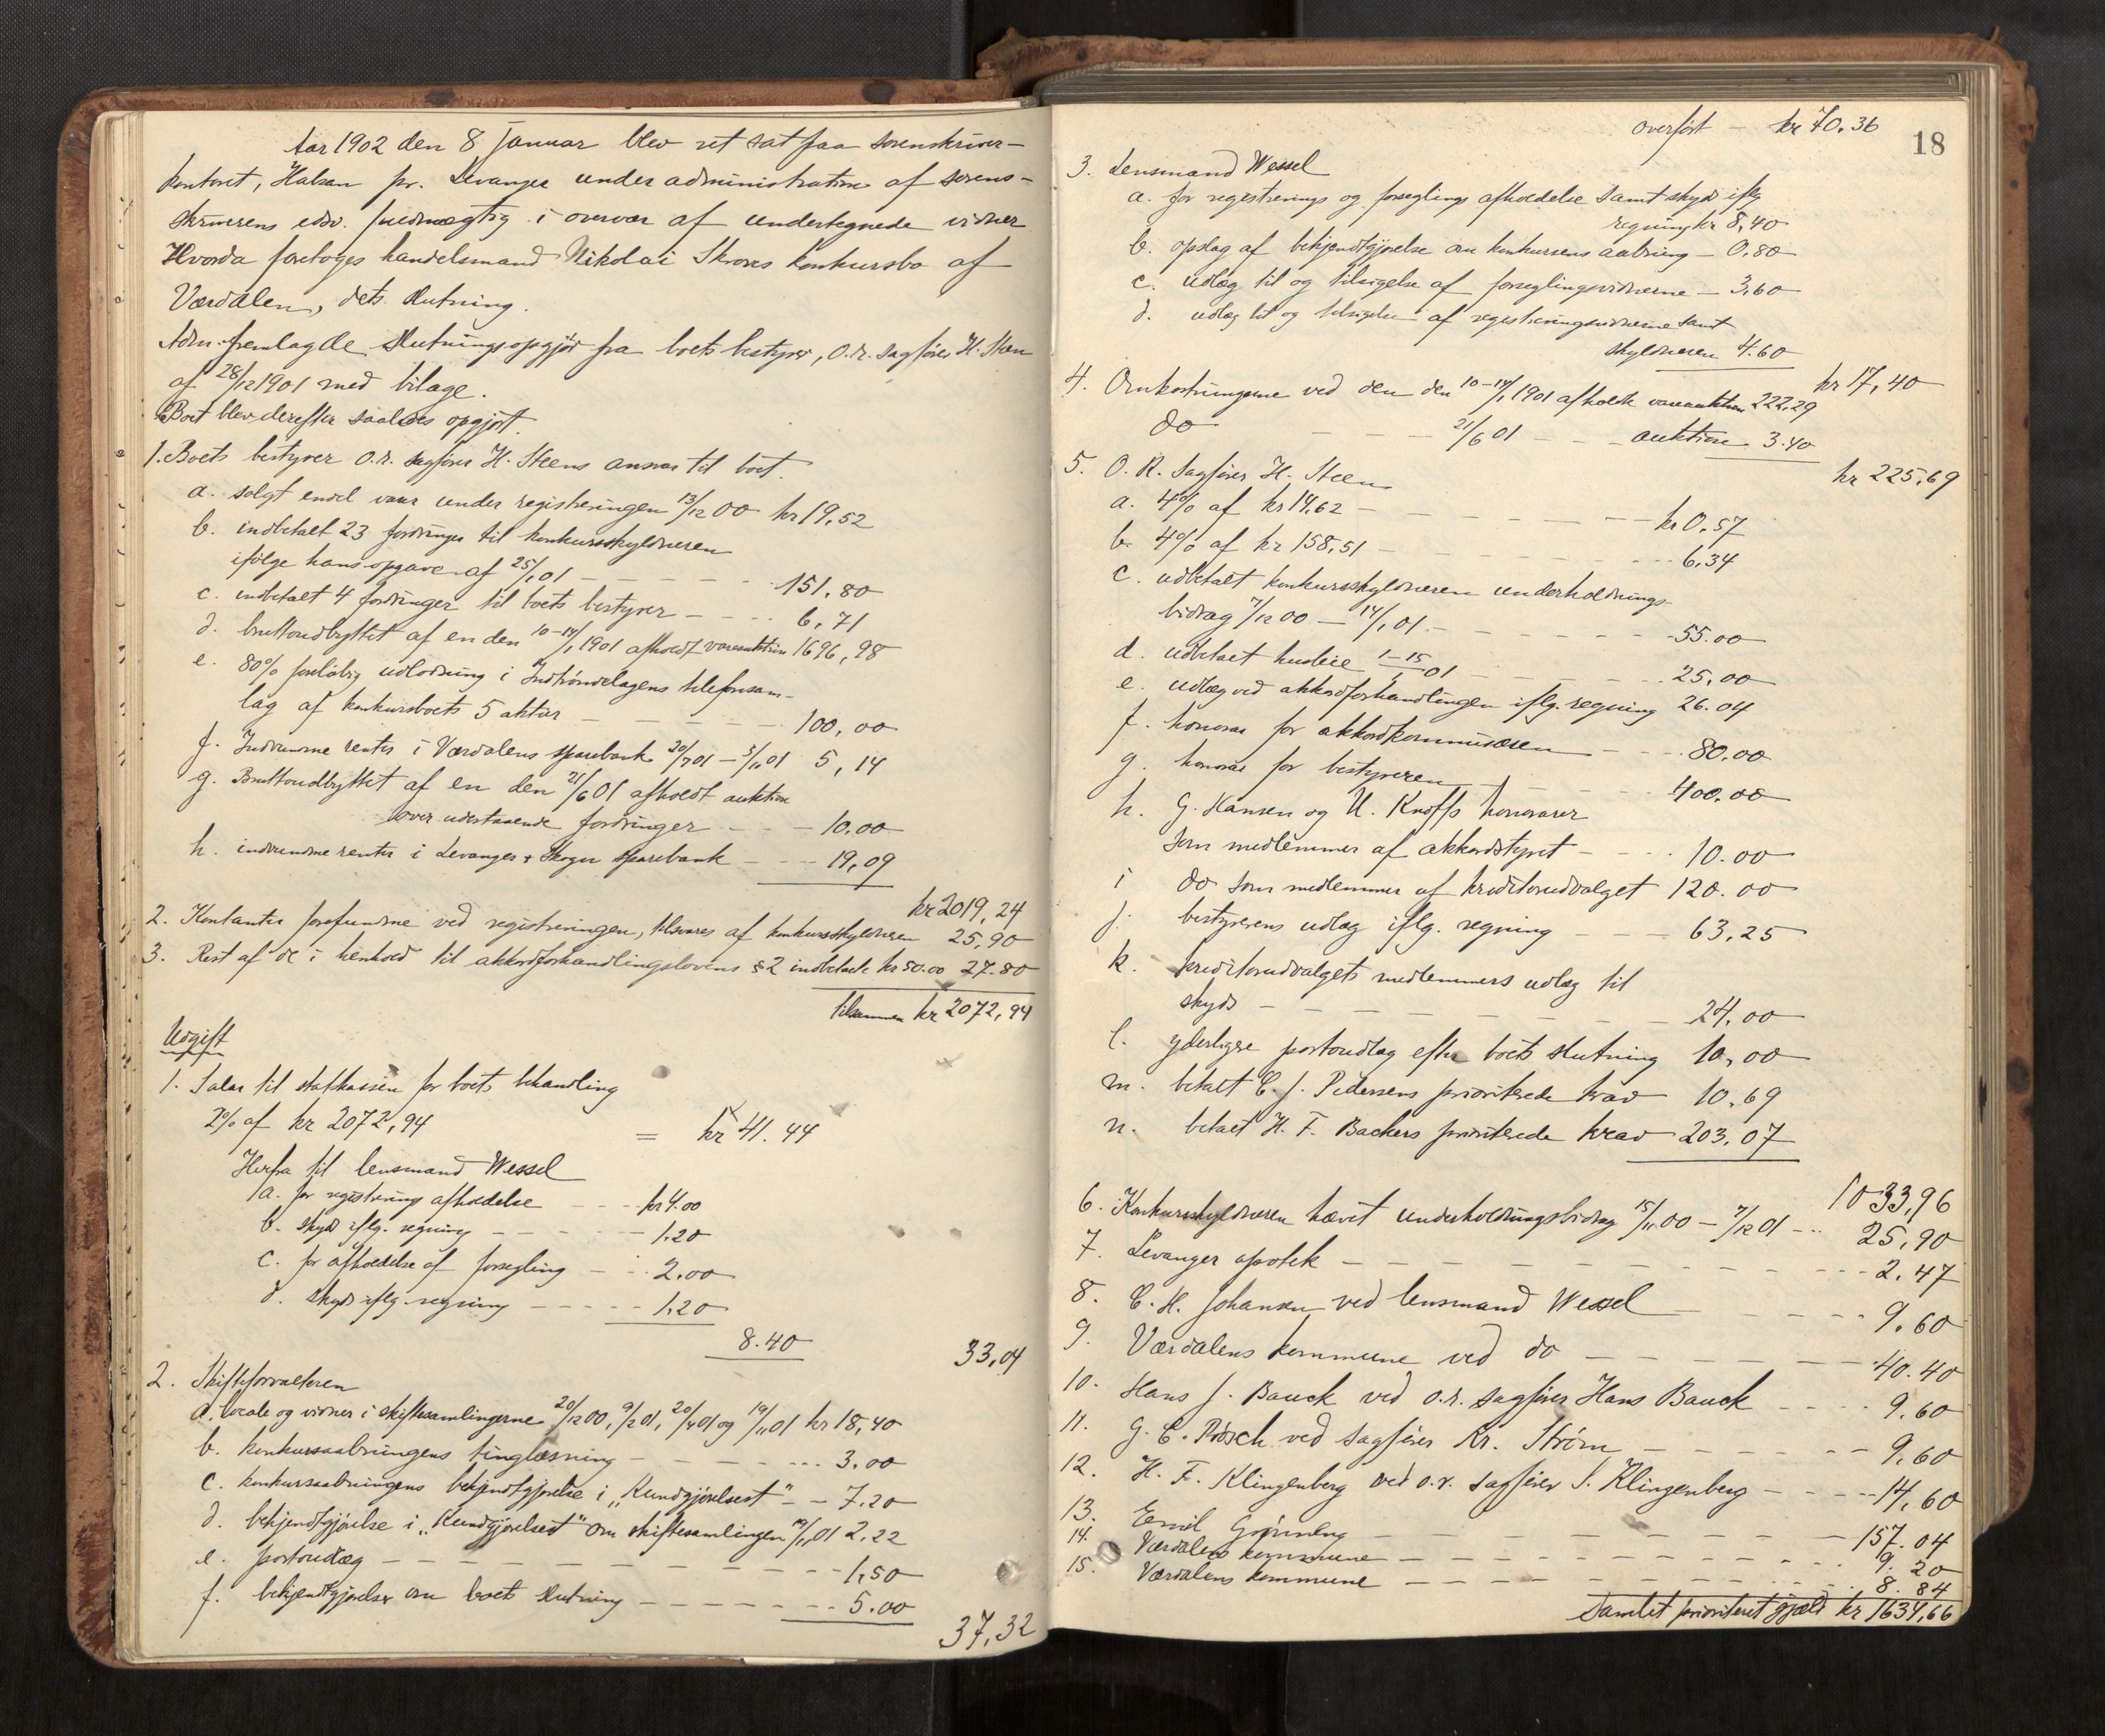 Aar 1902 den 8 januar blev ret sat paa sorenskriver-
kontoret, Halsan pr. Levanger under administration af sorens-
skriverens edsv. fuldmægtig i overvær af undertegnede vidner
Hvorda foretoges handelsmand Nikolai Skroves konkursbo af
Værdalen, dets slutning.
Adm. fremlagde slutningsopgjør fra boets bestyrer, O.r. sagfører H. Steen
af 28/12 1901 med bilage.
Boet blev derefter saaledes opgjort.
1. Boets bestyrer o.r. sagfører H. Steens ansvar til boet.
a. solgt endel varer under registreringen 13/12 00 kr 19,52
b. indbetalt 23 fordringer til konkursskyldneren
ifølge hans opgave af 25/1 01 - - - - 151,80
c. indbetalt 4 fordringer til boets bestyrer - - - 6,71
d. bruttoudbyttet af en den 10-14/1 1901 afholdt vareauktion 1696,98
e. 80% foreløbig udlodning i Indtrøndelagens telefonsam-
lag af konkursboets 5 aktier - - - - 100,00
f. Indvundne renter i Værdalens sparebank 20/7 01 - 5/11 01 5,14
g. Bruttoudbyttet af en den 21/6 01 afholdt auktion
over udestaaende fordringer - - - 10.00
h. indvundne renter i Levanger & Skogn sparebank - - - 19,09
kr 2019,24
2. Kontanter forefundne ved registreringen, tilsvares af konkursskyldneren 25,90
3. Rest af de i henhold til akkordforhandlingslovens § 2 indbetalte kr 50.00 27.80
tilsammen kr 2072,94
Udgift
1. Salær til statkassen for boets behandling
2% af kr 2072,94 = kr 41.44
Herfra til lensmand Wessel
a. for registrerings afholdelse - - - kr 4.00
b. skyds iflg. regning - - - - 1.20
c. for afholdelse af forsegling - - - 2.00
d. skyds iflg. regning - - - - - 1.20
8.40 33,04
2. Skifteforvalteren
a. locale og vidner i skiftesamlingerne 20/12 00, 9/2 01, 20/4 01 og 19/11 01 kr 18,40
b. konkursaabningens tinglæsning - - - - - 3.00
c. konkursaabningens bekjendtgjørelse i "Kundgjørelsest" - - 7.20
d. bekjendtgjørelse i "Kundgjørelsest" om skiftesamlingen 19/11 01 2,22
e. portoudlæg - - - - - - - - 1,50
f. bekjendtgjørelse om boets slutning - - - - - - 5.00
37,32
18
overført - kr 70.36
3. Lensmand Wessel
a. for registrerings og forseglings afholdelse samt skyds iflg
regning kr 8,40
b. opslag af bekjendtgjørelse om konkursens aabning - 0.80
c. udlæg til og tilsigelse af forseglingsvidnerne - 3,60
d. udlæg til og tilsigelse af registreringsvidnerne samt
skyldneren 4.60
kr 17,40
4. Omkostningerne ved den den 10-14/1 1901 afholdte vareauktion 222,29
do - - - 21/6 01 - - - auktion 3.40
kr 225,69
5. O. R. Sagfører H. Steen
a. 4% af kr 14,62 - - - - - - kr 0,57
b. 4% af kr 158,51 - - - - - - 6,34
c. udbetalt konkursskyldneren underholdnings-
bidrag 7/12 00 - 14/1 01 - - - - - 55.00
d. udbetalt husleie 1-15/1 01 - - - - 25,00
e. udlæg ved akkordforhandlingen iflg. regning 26.04
f. honorar for akkordkommissæren - - - 80.00
g. honorar for bestyreren - - - 400.00
h. G. Hansen og U. Knoffs honorarer
som medlemmer af akkordstyret - - - 10.00
i do som medlemmer af kreditorudvalget 120.00
j. bestyrerens udlæg iflg. regning - - - 63,25
k. kreditorudvalgets medlemmers udlæg til
skyds - - - - - - - 24,00
l. yderligere portoudlæg efter boets slutning 10,00
m. betalt C. J. Pedersens prioriterede krav 10,69
n. betalt H. F. Backers prioriterede krav 203,07
1033,96
6. Konkursskyldneren hævet underholdningsbidrag 15/11 00 - 7/12 01 - - - 25,90
7. Levanger apotek - - - - - - - - - 2.47
8. C. H. Johansen ved lensmand Wessel - - - - 9.60
9. Værdalens kommune ved do - - - - - - 40.40
10. Hans J. Bauck ved o.r. sagfører Hans Bauck - - - 9.60
11. G. C. ved sagfører Kr. Strøm - - - - - 9,60
12. H. F. Klingenberg ved o.r. sagfører S. Klingenberg - - - - 14,60
13. Emil - - - - - - - - 157.04
14. Værdalens kommune - - - - - - - - 9.20
15. Værdalens kommune - - - - - - - - 8.84
Samlet prioriteret gjæld kr 1634,66